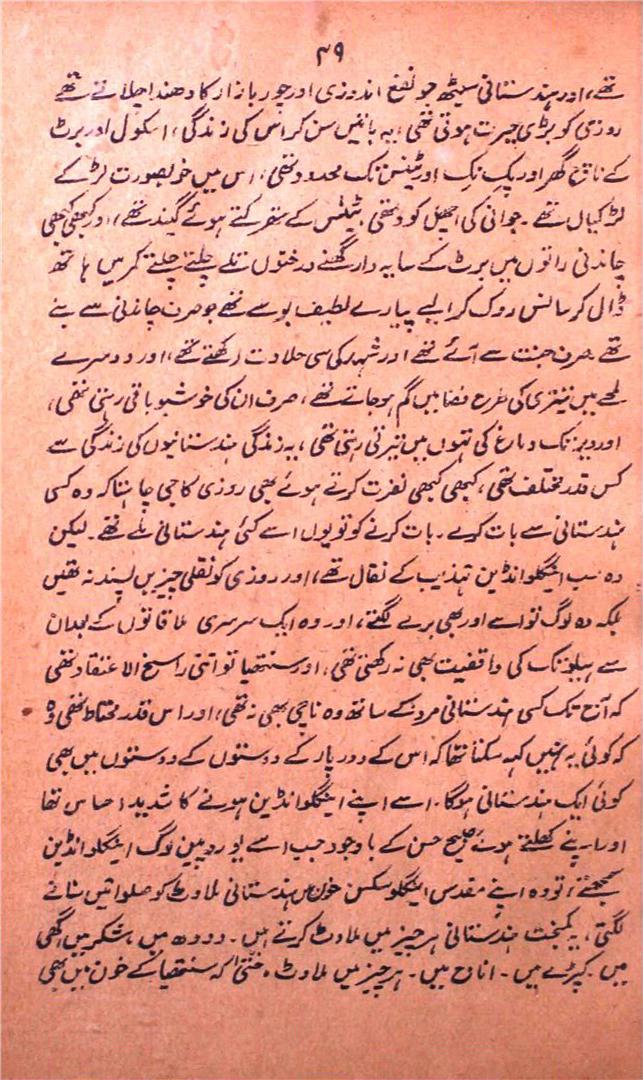 ۴۹
تھے، اور ہندستانی سیٹھ جو نفع اندوزی اور چور بازار کا دھندا چلاتے تھے
روزی کو بڑی حیرت ہوتی تھی، یہ باتیں سن کر اس کی زندگی، اسکول اور برٹ
کے ناچ گھر اور پک نک اور ٹینس تک محدود تھی، اس میں خوبصورت لڑکے
لڑکیاں تھے۔ جوانی کی اچھل کود تھی، ٹینس کے سفر کتے ہوئے گیند تھے، اور کبھی کبھی
چاندنی راتوں میں برٹ کے سایہ دار گھنے درختوں تلے چلتے چلتے کمر میں ہاتھ
ڈال کر سانس روک کر ایسے پیارے لطیف بوسے تھے جو صرف چاندنی سے بنے
تھے صرف جنت سے آئے تھے اور شہد کی سی حلاوت رکھتے تھے، اور دوسرے
لمحے میں تیتری کی طرح فضا میں گم ہو جاتے تھے، صرف ان کی خوشبو باقی رہتی تھی،
اور دیر تک دماغ کی تہوں میں تیرتی رہتی تھی، یہ زندگی ہندستانیوں کی زندگی سے
کس قدر مختلف تھی، کبھی کبھی نفرت کرتے ہوئے بھی روزی کا جی چاہتا کہ وہ کسی
ہندستانی سے بات کرے۔ بات کرنے کو تو یوں اسے کئی ہندستانی ملے تھے۔ لیکن
وہ سب اینگلو انڈین تہذیب کے نقال تھے، اور روزی کو نقلی چیزیں پسند نہ تھیں
بلکہ وہ لوگ تو اسے اور بھی برے لگتے، اور وہ ایک سرسری ملاقاتوں کے بعد ان
سے ہیلو تک کی واقفیت بھی نہ رکھتی تھی، اور سنتھیا تو اتنی راسخ الاعتقاد تھی
کہ آج تک کسی ہندستانی مرد کے ساتھ وہ ناچی بھی نہ تھی، اور اس قدر محتاط تھی وہ
کہ کوئی یہ نہیں کہہ سکتا تھا کہ اس کے دور پار کے دوستوں کے دوستوں میں بھی
کوئی ایک ہندستانی ہوگا۔ اسے اپنے اینگلو انڈین ہونے کا شدید احساس تھا
اور اپنے کھلتے ہوئے صبیح حسن کے باوجود جب اسے یوروپین لوگ اینگلو انڈین
سمجھتے، تو وہ اپنے مقدس اینگلو سکسن خون میں ہندستانی ملاوٹ کو صلواتیں سنانے
لگتی، یہ کمبخت ہندستانی ہر چیز میں ملاوٹ کرتے ہیں۔ دودھ میں، شکر میں، گھی
میں۔ کپڑے میں۔ اناج میں۔ ہر چیز میں ملاوٹ، حتیٰ کہ سنتھیا کے خون میں بھی